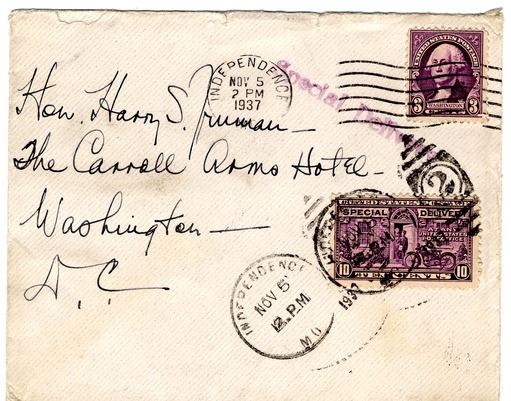 INDEPENDENCE
NOV 5
2 PM
1937
Special Delivery
UNITED STATES POSTAGE
3 WASHINGTON 3
Hon. Harry S. Truman—
The Carroll Arms Hotel—
Washington—
D.C.
2
UNITED STATES POSTAGE
SPECIAL DELIVERY
AT ANY
UNITED STATES
POST OFFICE
10 TEN CENTS 10
INDEPENDENCE
NOV 5
2 PM
MO
1937